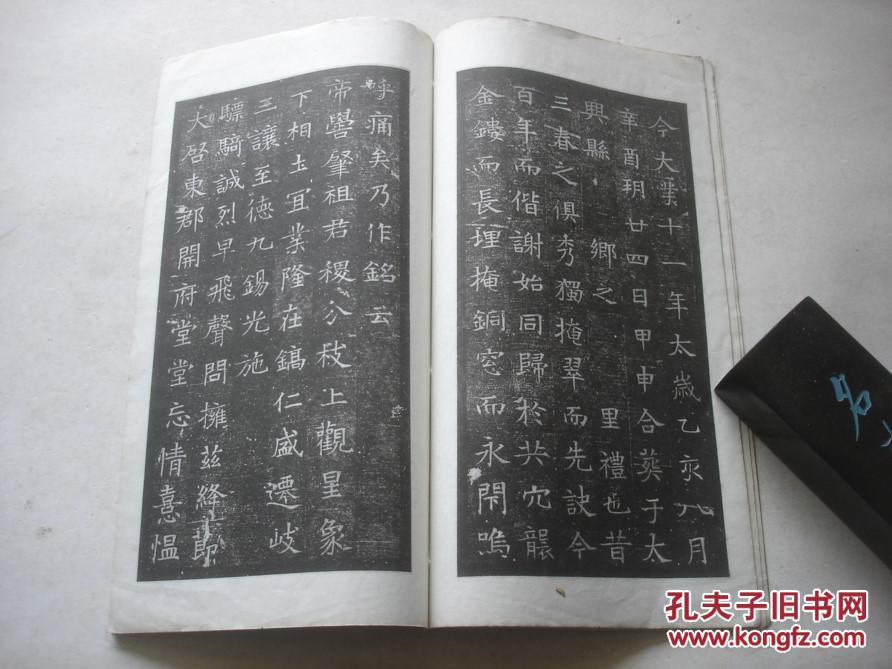 今大業十一年太歲乙亥八月
辛酉玥廿四日甲申合葬于太
興縣 鄉之 里禮也昔
三春之俱秀獨掩翠而先訣今
百年而偕謝始同歸於共穴襲
金鏤而長埋掩銅窓而永閇嗚
呼痛矣乃作銘云
帝嚳肇祖君稷分枝上觀星象
下相土宜業隆在鎬仁盛遷岐
三讓至德九錫光施
驃騎誠烈早飛聲問擁茲絳節
大啓東郡開府堂堂忘情憙慍
名
孔夫子旧书网
www.kongfz.com